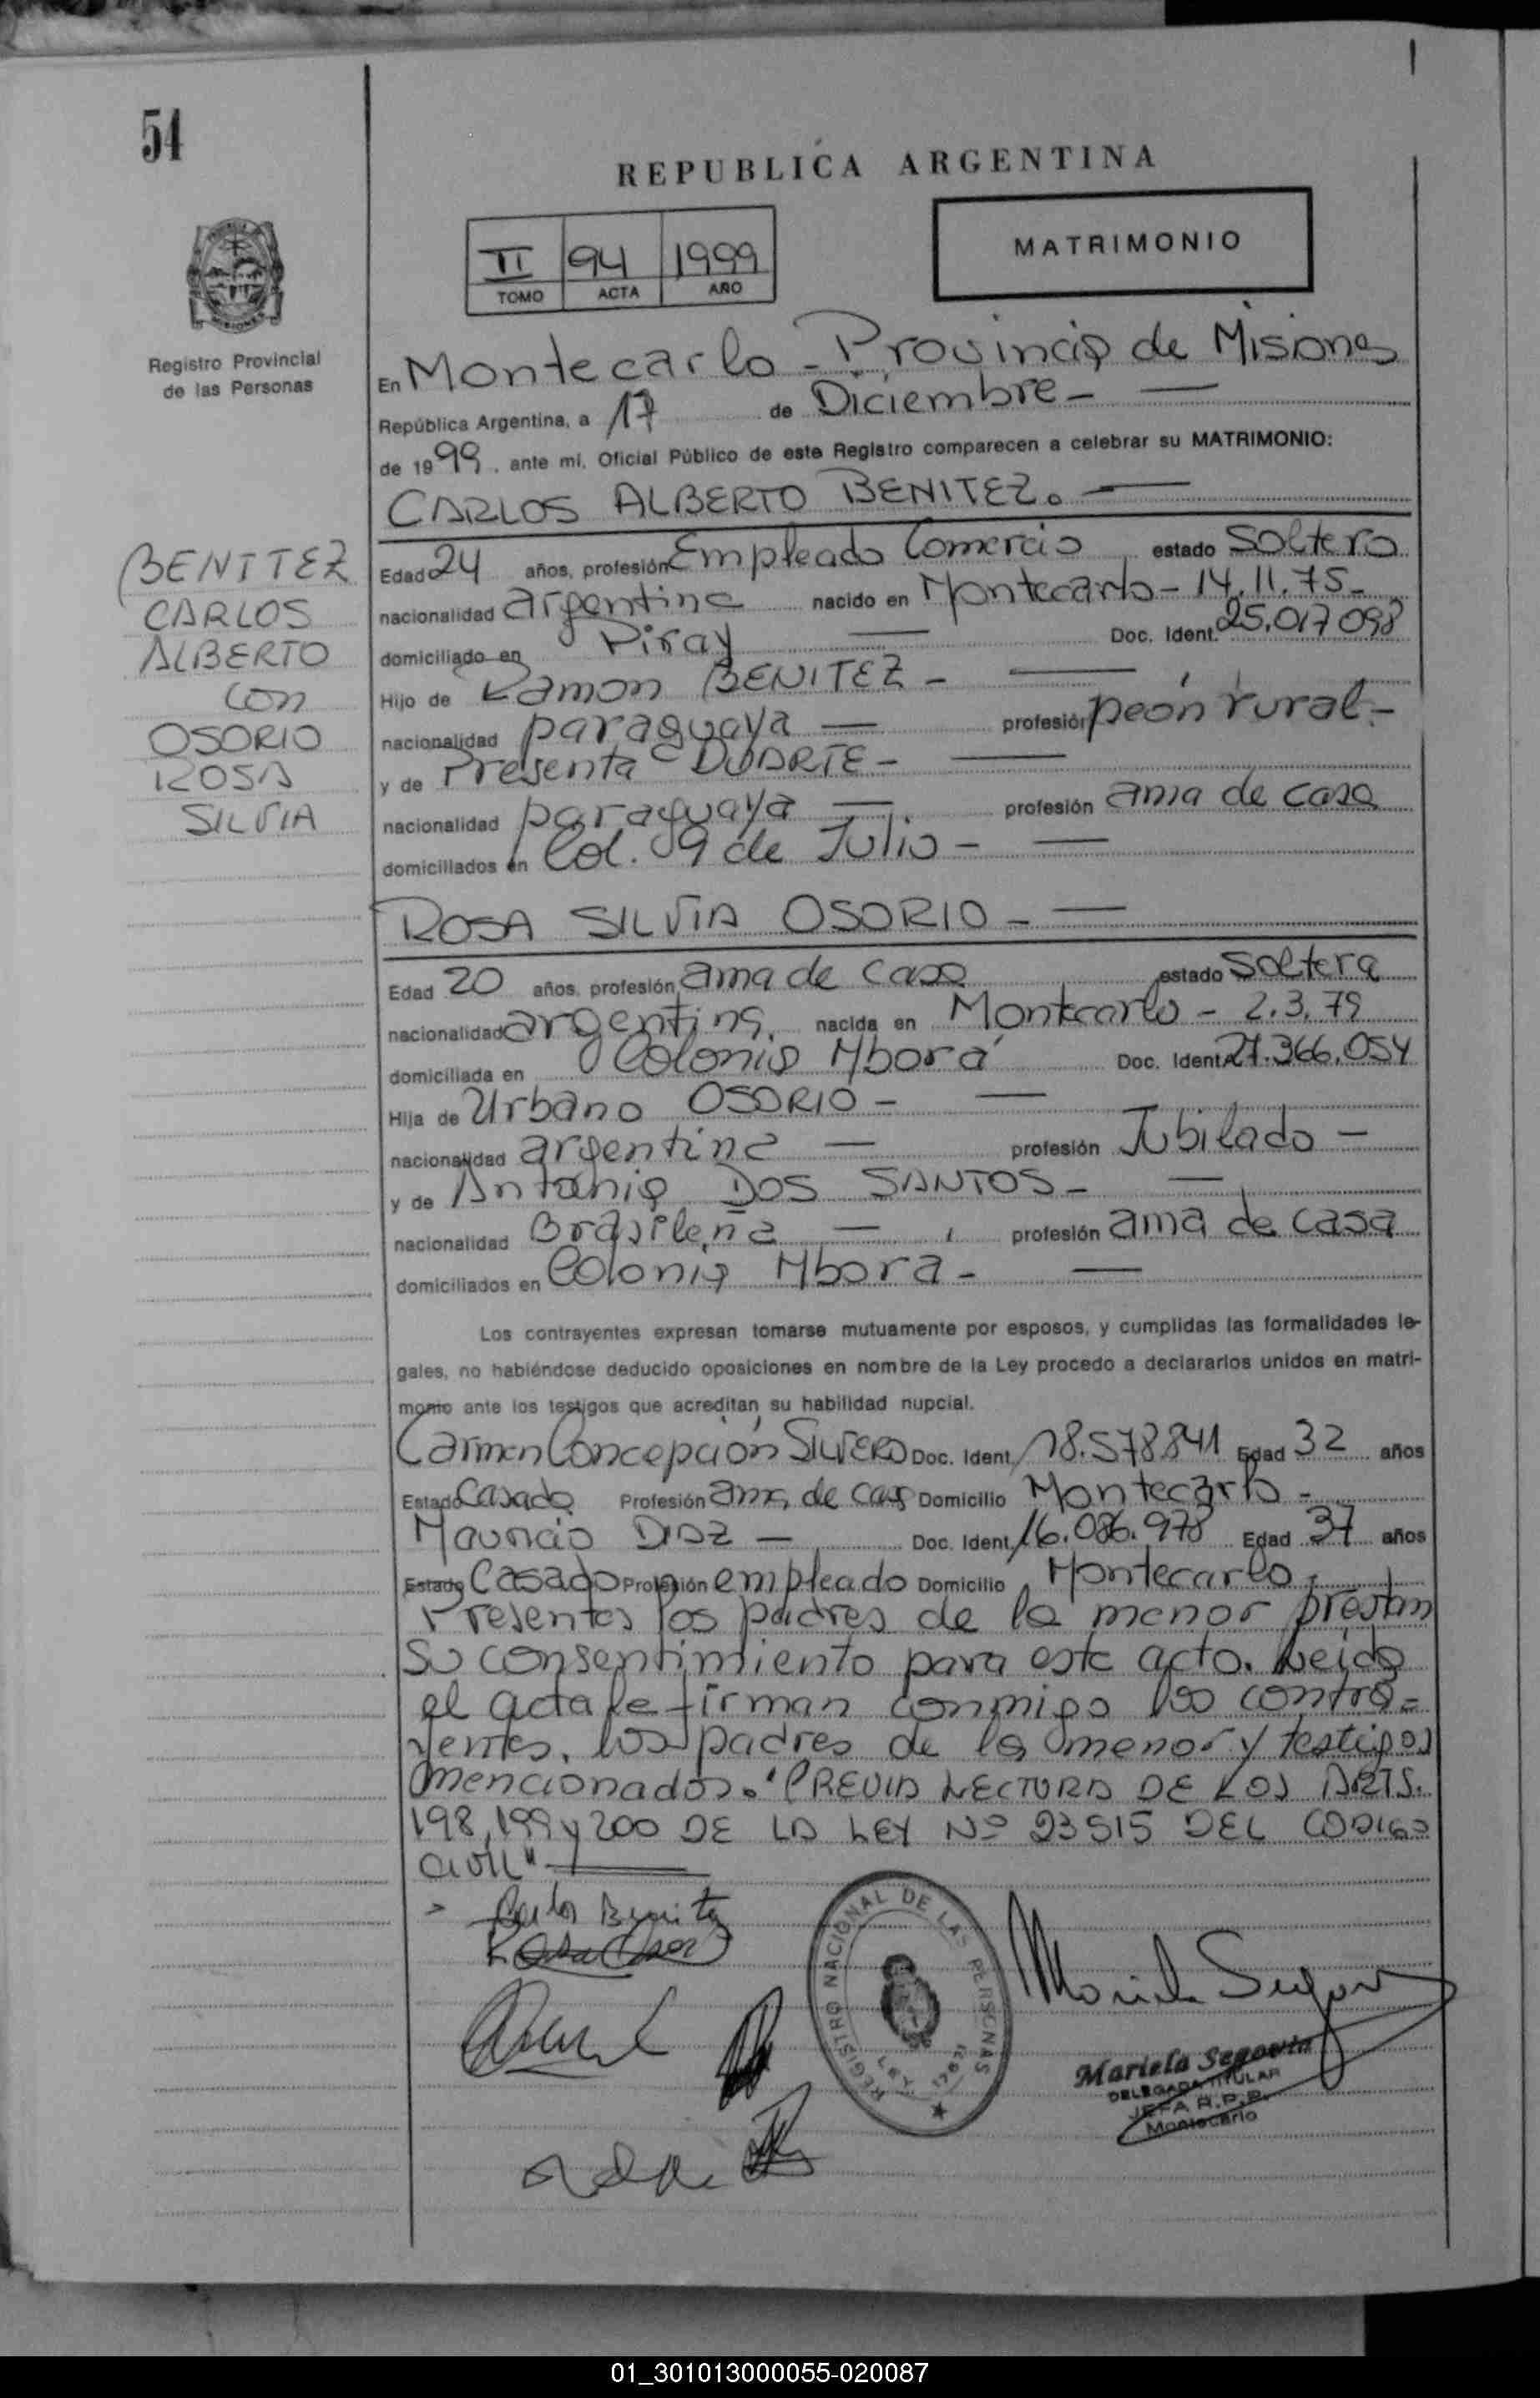 54
REPUBLICA ARGENTINA
II 94 1999
TOMO ACTA AÑO
MATRIMONIO
Registro Provincial
de las Personas
En Montecarlo - Provincia de Misiones
República Argentina, a 17 de Diciembre -
de 1999, ante mi, Oficial Público de este Registro comparecen a celebrar su MATRIMONIO:
CARLOS ALBERTO BENITEZ.
BENITEZ
CARLOS
ALBERTO
con
OSORIO
ROSA
SILVIA
Edad 24 años, profesión Empleado Comercio estado Soltero
nacionalidad argentina nacido en Montecarlo - 14.11.75 -
domiciliado en Piray Doc. Ident. 25.017098
Hijo de Ramon BENITEZ -
nacionalidad paraguaya profesión peón rural -
y de Presenta DUARTE -
nacionalidad paraguaya profesión ama de casa
domiciliados en Col. 9 de Julio -
ROSA SILVIA OSORIO -
Edad 20 años, profesión ama de casa estado Soltera
nacionalidad argentina, nacida en Montecarlo - 2.3.79
domiciliada en Colonia Mborá Doc. Ident. 27.366.054
Hija de Urbano OSORIO -
nacionalidad argentina profesión Jubilado -
y de Antonia DOS SANTOS -
nacionalidad Brasileña profesión ama de casa
domiciliados en Colonia Mbora -
Los contrayentes expresan tomarse mutuamente por esposos, y cumplidas las formalidades le-
gales, no habiéndose deducido oposiciones en nombre de la Ley procedo a declararlos unidos en matri-
monio ante los testigos que acreditan su habilidad nupcial.
Carmen Concepción SILVERO Doc. Ident. 18.578.841 Edad 32 años
Estado Casada Profesión ama de casa Domicilio Montecarlo -
Mauricio DIAZ - Doc. Ident. 16.086.978 Edad 37 años
Estado Casado Profesión empleado Domicilio Montecarlo.
Presentes los padres de la menor prestan
su consentimiento para este acto. Leida
el acta la firman conmigo los contra=
yentes, los padres de la menor y testigos
mencionados. "PREVIA LECTURA DE LOS ARTS.
198, 199 y 200 DE LA LEY Nº 23515 DEL CODIGO
CIVIL"
Carlos Benitez
Rosa Osorio
REGISTRO NACIONAL DE LAS PERSONAS
LEY 17671
Mariela Segovia
Mariela Segovia
DELEGADA TITULAR
JEFA R.P.P.
Montecarlo
01_301013000055-020087